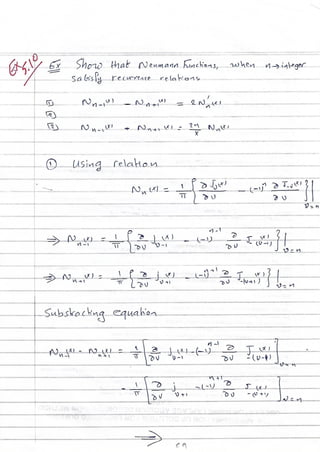 Ex 5.10
Ex Show that Neumann functions, when n → integer
satisfy recurrence relations
① N_{n-1}(x) - N_{n+1}(x) = 2 N'_n(x)
②
N_{n-1}(x) + N_{n+1}(x) = 2n/x N_n(x)
① Using relation
N_n(x) = 1/π { ∂J_υ(x)/∂υ - (-1)^n ∂J_{-υ}(x)/∂υ }|_{υ=n}
⇒ N_{n-1}(x) = 1/π { ∂/∂υ J_{υ-1}(x) - (-1)^{n-1} ∂/∂υ J_{-(υ-1)}(x) }|_{υ=n}
⇒ N_{n+1}(x) = 1/π { ∂/∂υ J_{υ+1}(x) - (-1)^{n+1} ∂/∂υ J_{-(υ+1)}(x) }|_{υ=n}
Substracting equation
N_{n-1}(x) - N_{n+1}(x) = 1/π [ ∂/∂υ J_{υ-1}(x) - (-1)^{n-1} ∂/∂υ J_{-(υ-1)}(x) ]_{υ=n}
- 1/π [ ∂/∂υ J_{υ+1} - (-1)^{n+1} ∂/∂υ J_{-(υ+1)}(x) ]_{υ=n}
⇒